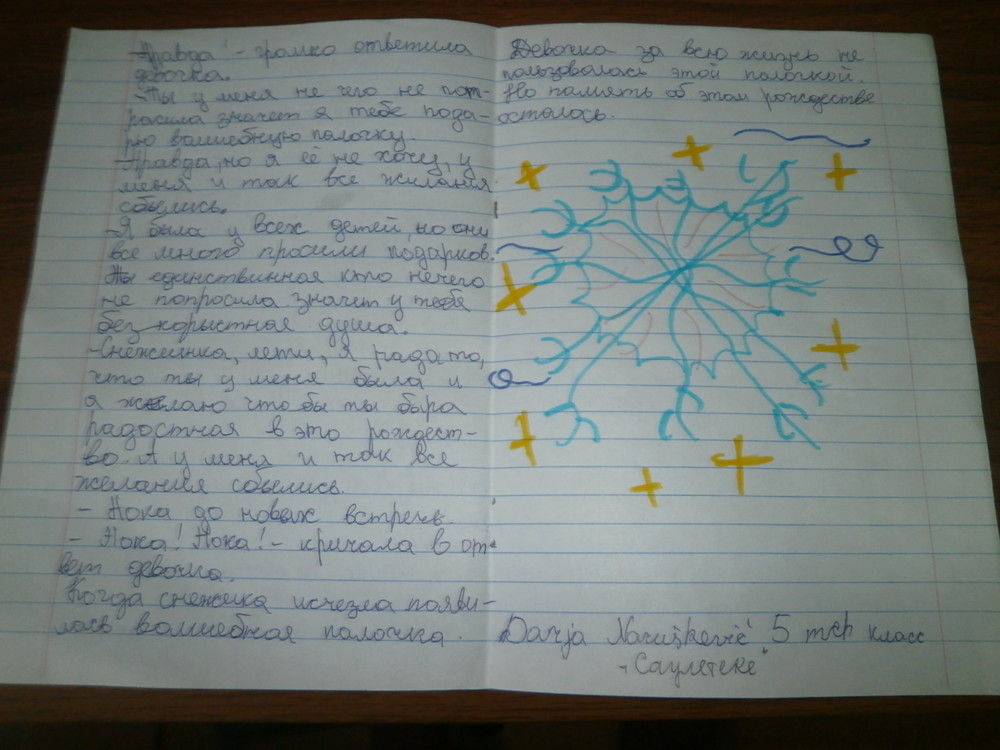 -Правда! - громко ответила
девочка.
-Ты у меня не чего не поп-
расила значет я тебе пода-
рю волшебную палочку.
-Правда, но я её не хочу, у
меня и так все желания
сбылись.
-Я была у всех детей, но они
все много просили подарков.
Ты единствинная кто нечего
не попросила значет у тебя
без корыстная душа.
-Снежинка, лети, я рада то,
что ты у меня была и
я желаю что бы ты быра
радостная в это рождест-
во. А у меня и так все
желания сбылись.
- Пока до новых встречь.
- Пока! Пока! - кричала в от-
вет девочка.
Когда снежика исчезла появи-
лась волшебная палочка.
Девочка за всю жизнь не
пользовалась этой полочкой.
Но память об этом рождестве
осталось.
Darja Naruškevič 5 mch класс
"Саулетеке"